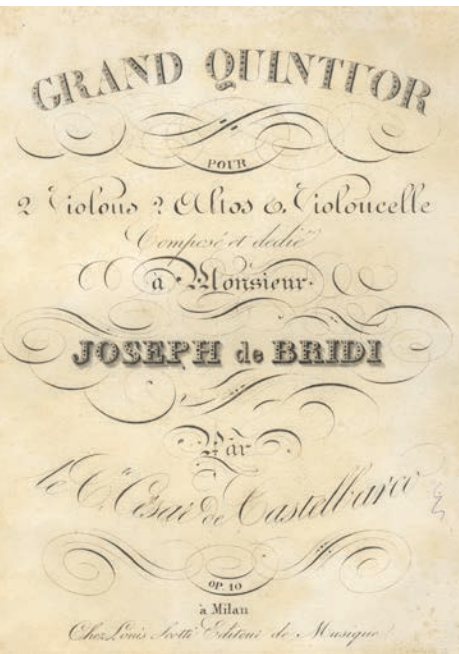 GRAND QUINTUOR
POUR
2 Violons 2 Altos & Violoncelle
Composé et dedié
à Monsieur
JOSEPH de BRIDI
Par
le C.te César de Castelbarco
OP. 10
à Milan
Chez Louis Scotti Editeur de Musique